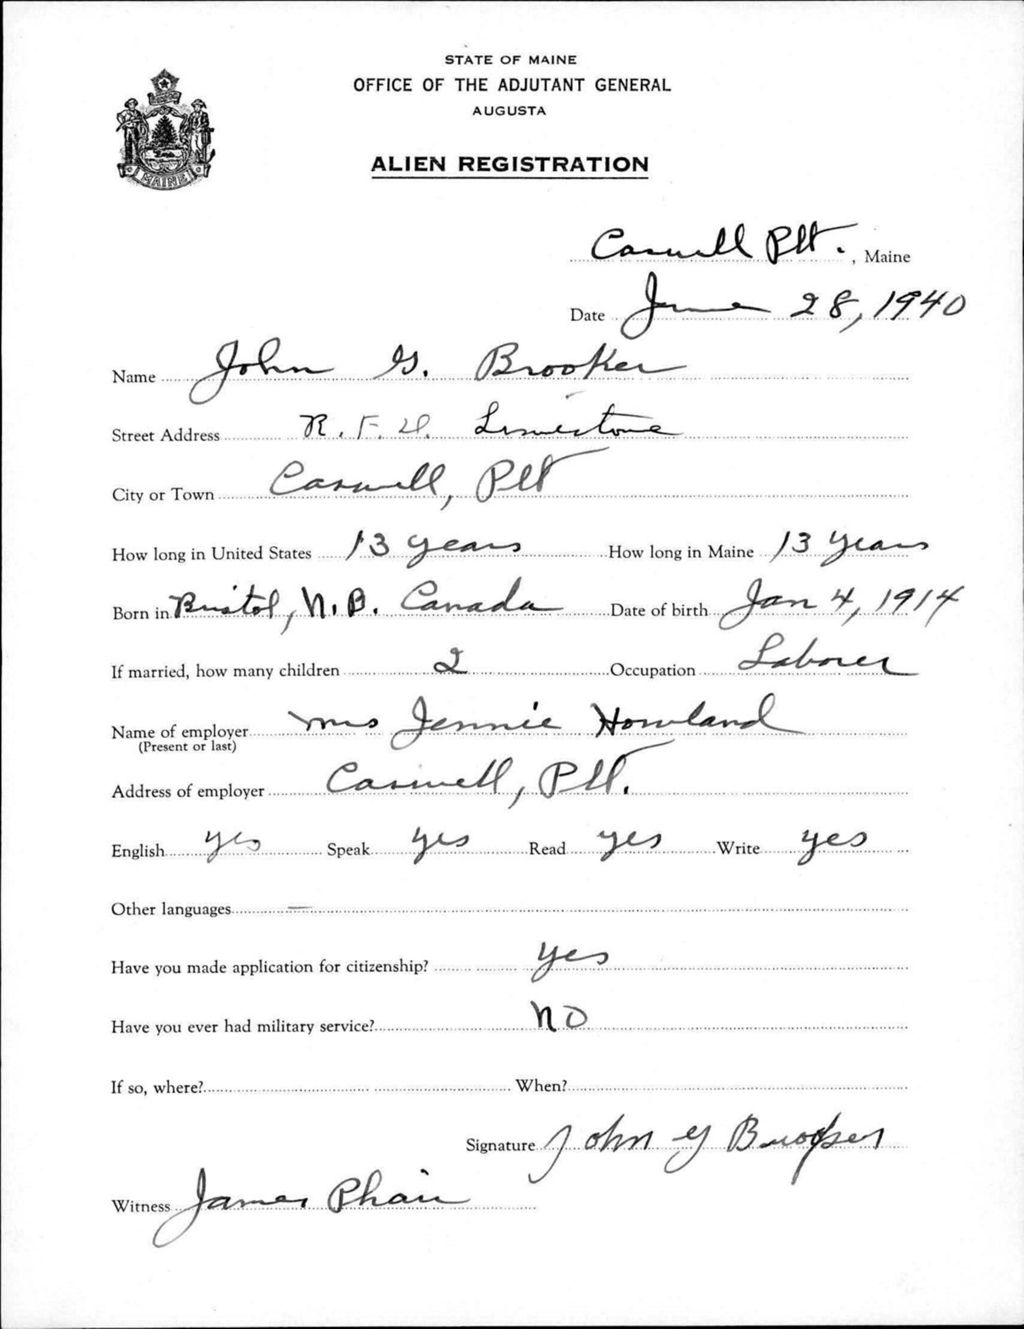 STATE OF MAINE
OFFICE OF THE ADJUTANT GENERAL
AUGUSTA
MAINE
ALIEN REGISTRATION
Caswell Plt., Maine
Date June 28, 1940
Name John G. Brooker
Street Address R. F. D. Limestone
City or Town Caswell, Plt
How long in United States 13 years How long in Maine 13 years
Born in Bristol, N.B. Canada Date of birth Jan 4, 1914
If married, how many children 2 Occupation Laborer
Name of employer Mrs Jennie Howland
(Present or last)
Address of employer Caswell, Plt.
English yes Speak yes Read yes Write yes
Other languages —
Have you made application for citizenship? yes
Have you ever had military service? NO
If so, where? When?
Signature John G Brooker
Witness James Phair